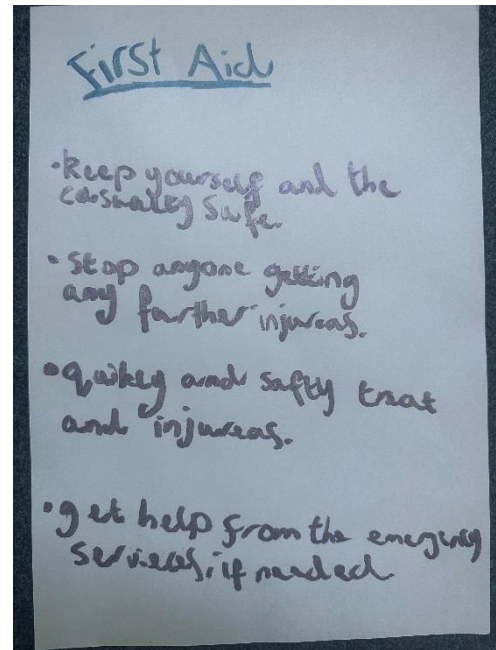 First Aid
• keep yourself and the
casualty safe.
• Stop anyone getting
any further injureas.
• quikly and saftly treat
and injureas.
• get help from the emergency
services, if needed